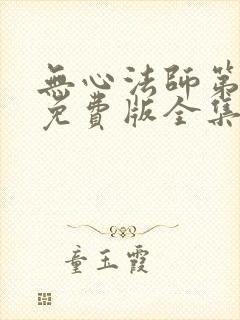 無心法師第
免費版全集
童玉霞